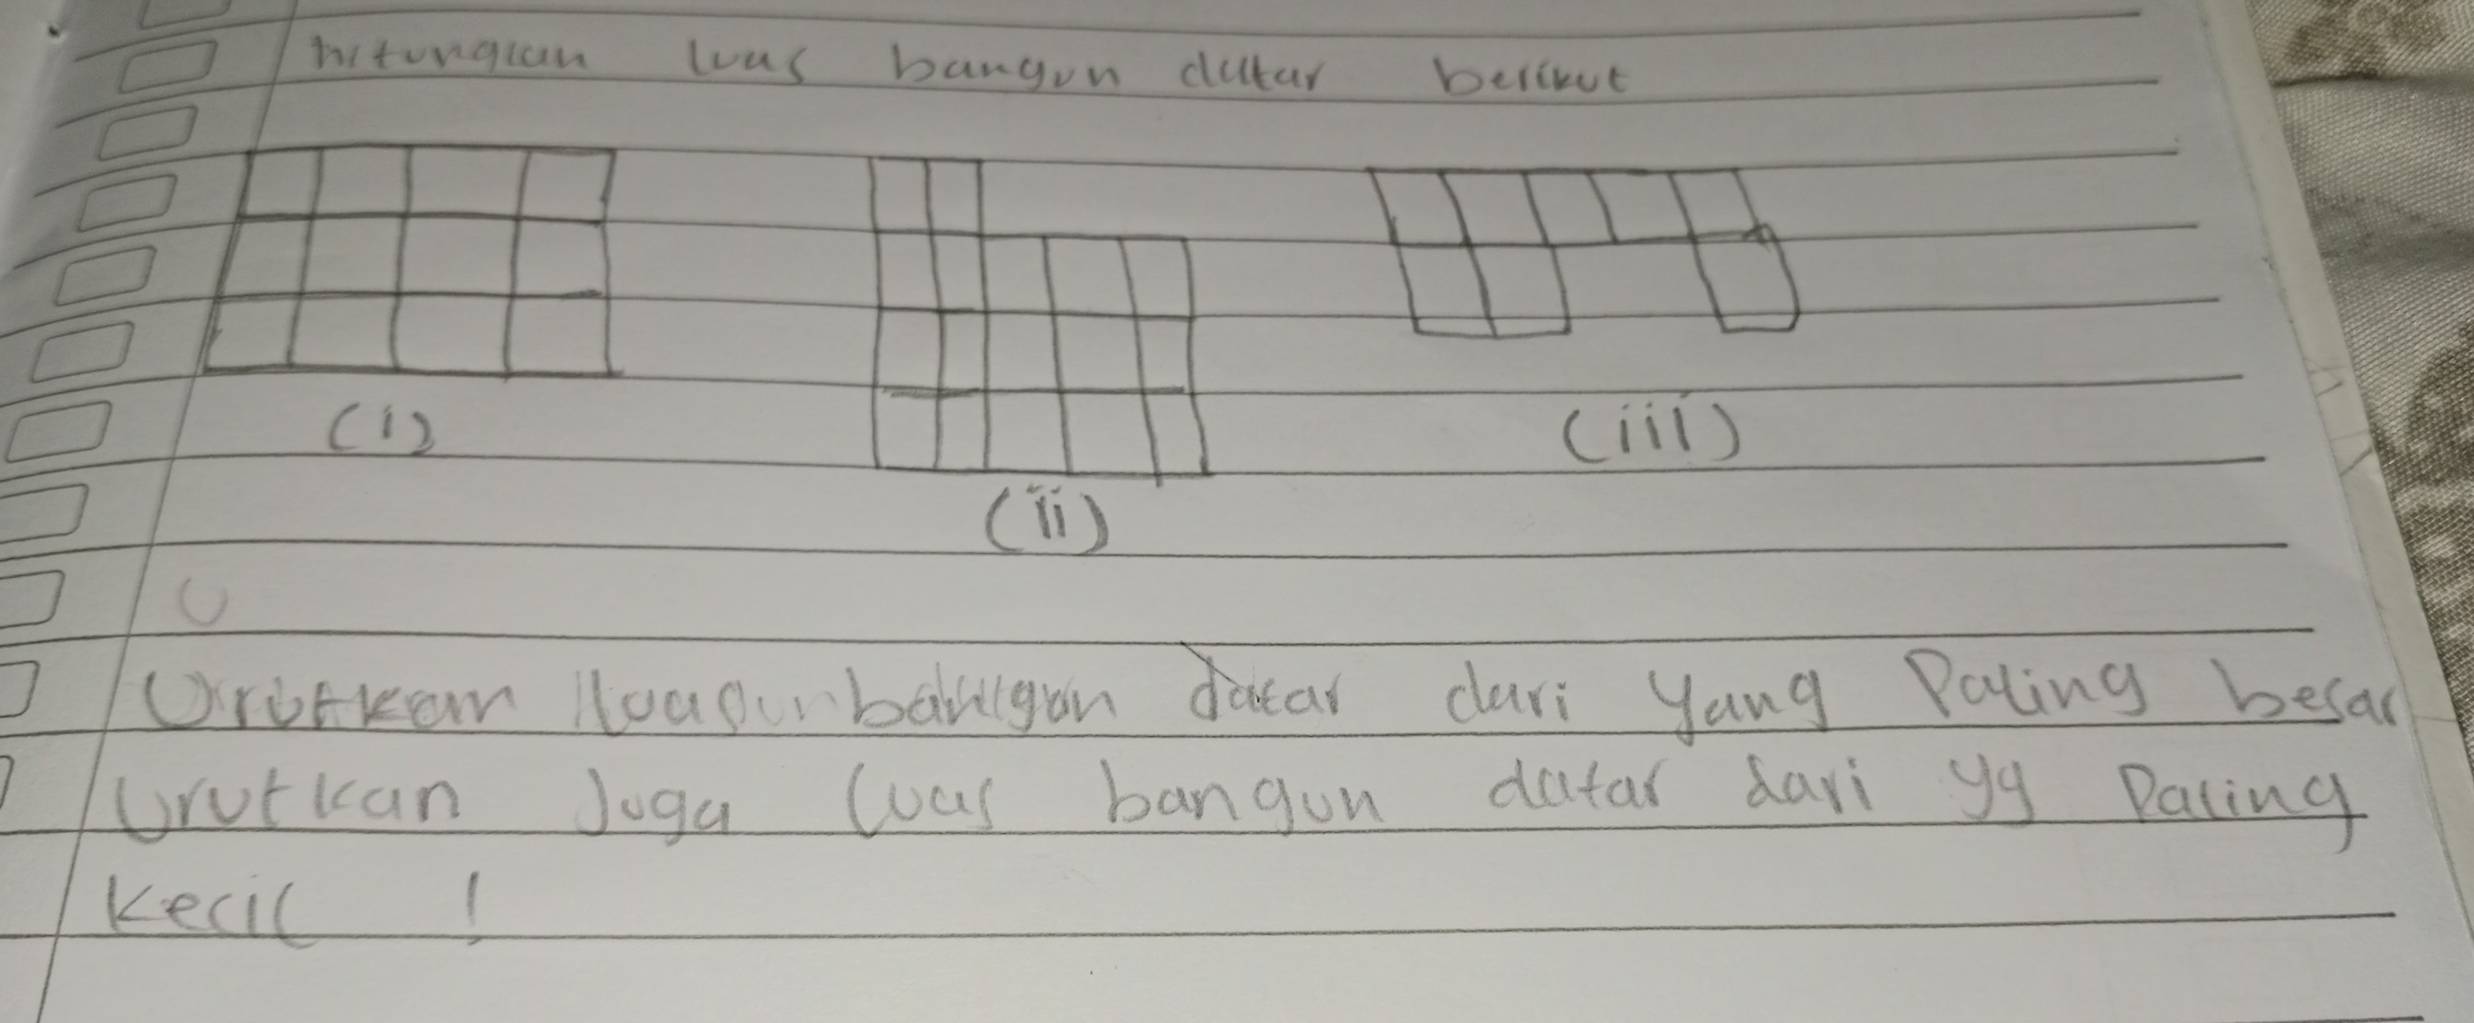 hitunglan luas bangun datar berikut
(i)
(ii)
(iii)
Urutkan bangun datar dari yang Paling besar
Urutkan Juga luas bangun datar dari yg Paling
kecil !